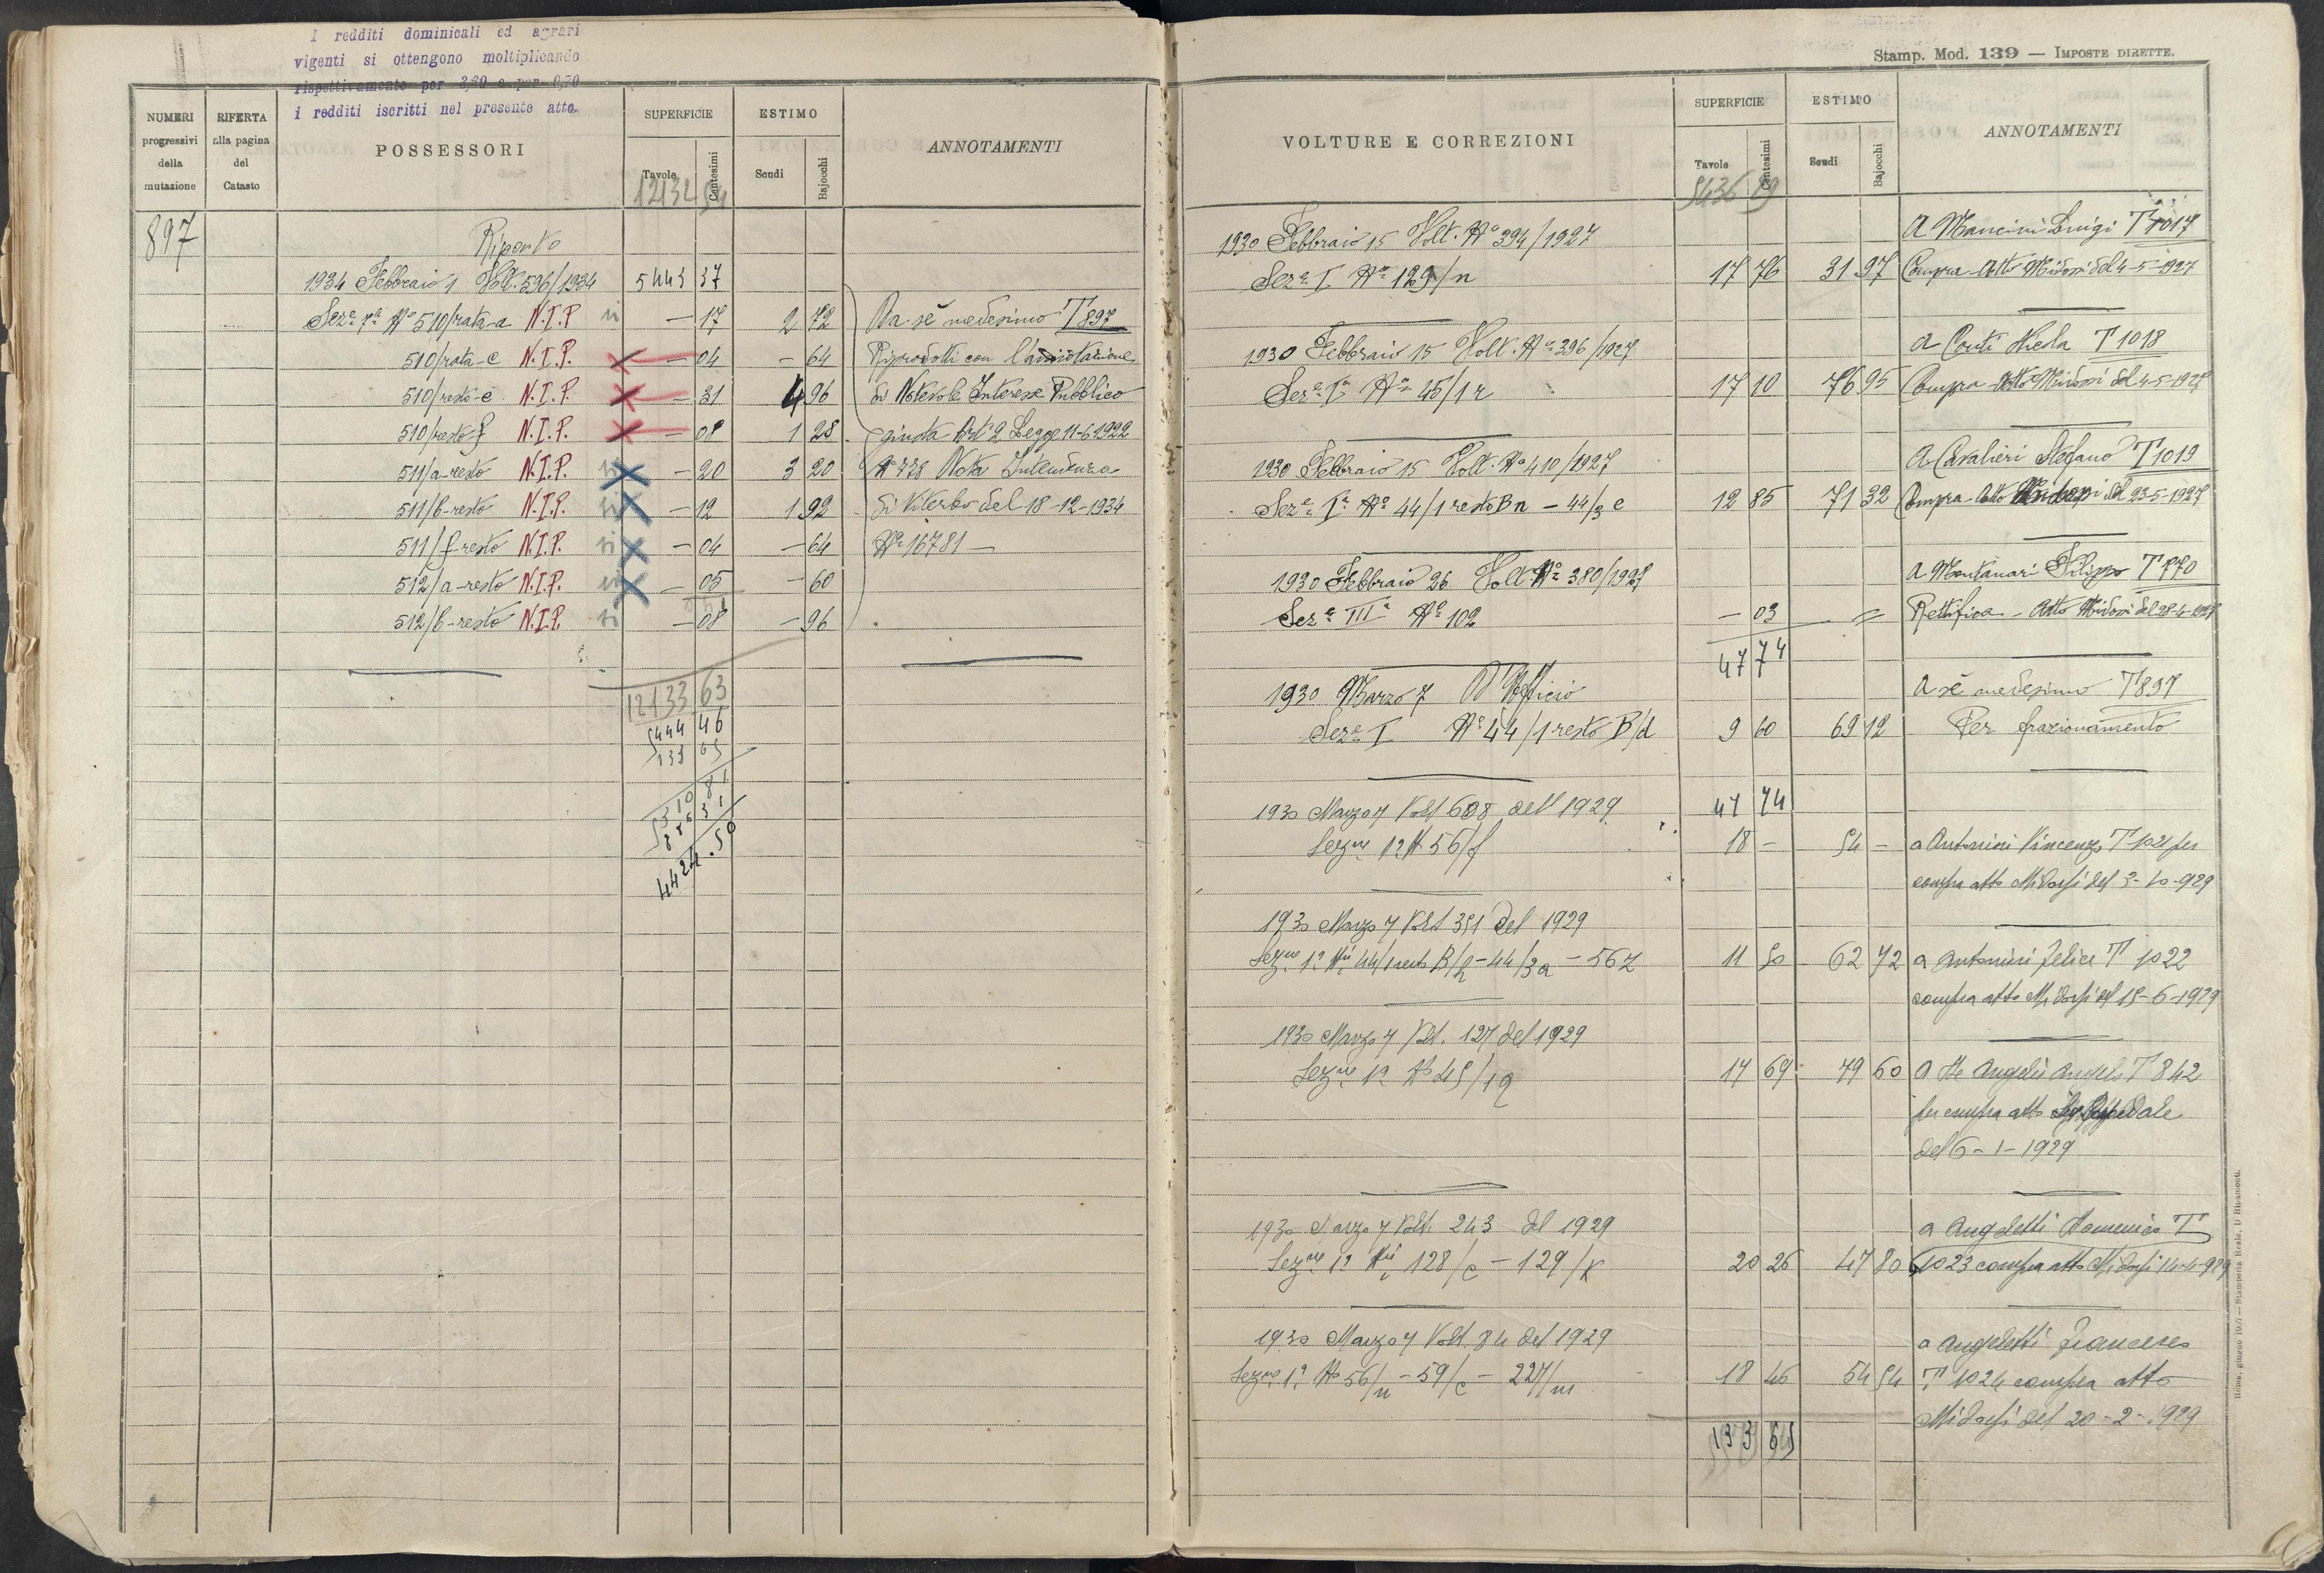 I redditi dominicali ed agrari
vigenti si ottengono moltiplicando
rispettivamente per 3,60 e per 0,70
i redditi iscritti nel presente atto.
NUMERI progressivi della mutazione
RIFERTA alla pagina del Catasto
POSSESSORI
SUPERFICIE
Tavole
Centesimi
ESTIMO
Scudi
Bajocchi
ANNOTAMENTI
12132 54
897
Riporto
1934 Febbraio 1 Volt. 596/1934 5443 37
Sez.e 7a No 510/rata-a N.I.P. si — 17 2 72 Da sè medesimo T 897
510/rata-c N.I.P. — 04 — 64 Riprodotti con l'annotazione
510/resto-e N.I.P. — 31 4 96 di Notevole Interesse Pubblico
510/resto-f N.I.P. — 08 1 28 giusta Art. 2 Legge 11-6-1922
511/a-resto N.I.P. si — 20 3 20 No 778 Nota Intendenza
511/b-resto N.I.P. si — 12 1 92 di Viterbo del 18-12-1934
511/f-resto N.I.P. si — 04 — 64 No 16781 —
512/a-resto N.I.P. si — 05 — 60
512/b-resto N.I.P. si — 08 — 96
12133 63
5444 46
133 65
5310 81
4424.50
Stamp. Mod. 139 — IMPOSTE DIRETTE.
VOLTURE E CORREZIONI
SUPERFICIE
Tavole
Centesimi
ESTIMO
Scudi
Bajocchi
ANNOTAMENTI
5436 89
1930 Febbraio 15 Volt. No 394/1927 A Mancini Luigi T 1017
Sez.e I No 129/n 17 76 31 97 Compra Atto Midossi del 4-5-1927
1930 Febbraio 15 Volt. No 396/1927 A Conti T 1018
Sez.e Ia No 45/1 r 17 10 76 95 Compra Atto Midossi del 4-5-1927
1930 Febbraio 15 Volt. No 410/1927 A Cavalieri Stefano T 1019
Sez.e Ia No 44/1 resto B n — 44/3 e 12 85 71 32 Compra Atto Midossi del 23-5-1927
1930 Febbraio 26 Volt. No 380/1927 A Montanari Filippo T 770
Sez.e IIIa No 102 — 03 = Rettifica — Atto Midossi del 28-4-1927
47 74
1930 Marzo 7 D'Ufficio A sè medesimo T 897
Sez.e I No 44/1 resto B/d 9 60 69 12 Per frazionamento
1930 Marzo 7 Volt 608 dell 1929 47 74
Sezne 1a N 56/f 18 — 54 — a Antonini Vincenzo T 1021 per
compra atto Midossi del 3-10-929
1930 Marzo 7 Volt 351 del 1929
Sezne 1a Ni 44/1 resto B/h — 44/3a — 56 z 11 50 62 72 a Antonini Felice T 1022
compra atto Midossi del 15-6-1929
1930 Marzo 7 Volt. 127 del 1929
Sezne 1a No 45/1q 14 69 79 60 A De Angelis Angelo T 842
per compra atto
del 6-1-1929
1930 Marzo 7 Volt. 243 del 1929 a Angeletti Domenico T
Sezne 1a Ni 128/c — 129/k 20 26 47 80 1023 compra atto Midossi 14-4-929
1930 Marzo 7 Volt 84 del 1929 a Angeletti Francesco
Sezne 1a No 56/n — 59/c — 227/m 18 46 54 54 T 1024 compra atto
Midossi del 20-2-1929
133 65